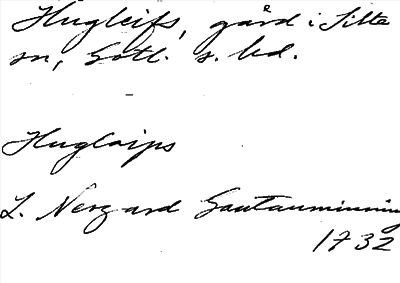 Hugleifs, gård i Silte
sn, Gotl. s. hd.
Huglaips
L. Nergard Gautauminning
1732